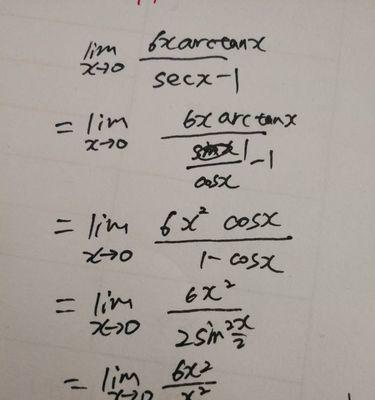 lim x→0 6x arctanx / secx-1
= lim x→0 6x arctanx / (1/cosx - 1)
= lim x→0 6x² cosx / 1-cosx
= lim x→0 6x² / 2sin² x/2
= lim x→0 6x² / x²